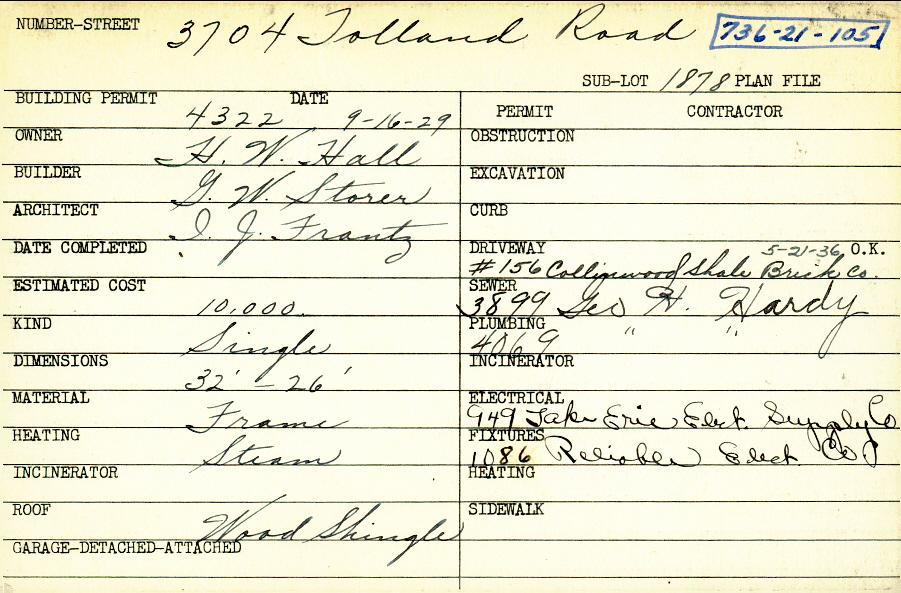 NUMBER-STREET 3704 Tolland Road 736-21-105
SUB-LOT 1878 PLAN FILE
BUILDING PERMIT DATE
4322 9-16-29
OWNER H. W. Hall
BUILDER G. W. Storer
ARCHITECT I. J. Frantz
DATE COMPLETED
ESTIMATED COST 10,000.
KIND Single
DIMENSIONS 32' - 26'
MATERIAL Frame
HEATING Steam
INCINERATOR
ROOF Wood Shingle
GARAGE-DETACHED-ATTACHED
PERMIT CONTRACTOR
OBSTRUCTION
EXCAVATION
CURB
DRIVEWAY 5-21-36, O.K.
#156 Collinwood Shale Brick Co.
SEWER
3899 Geo H. Hardy
PLUMBING
4069 " "
INCINERATOR
ELECTRICAL
949 Lake Erie Elect. Supply Co
FIXTURES
1086 Reliable Elect. Co
HEATING
SIDEWALK